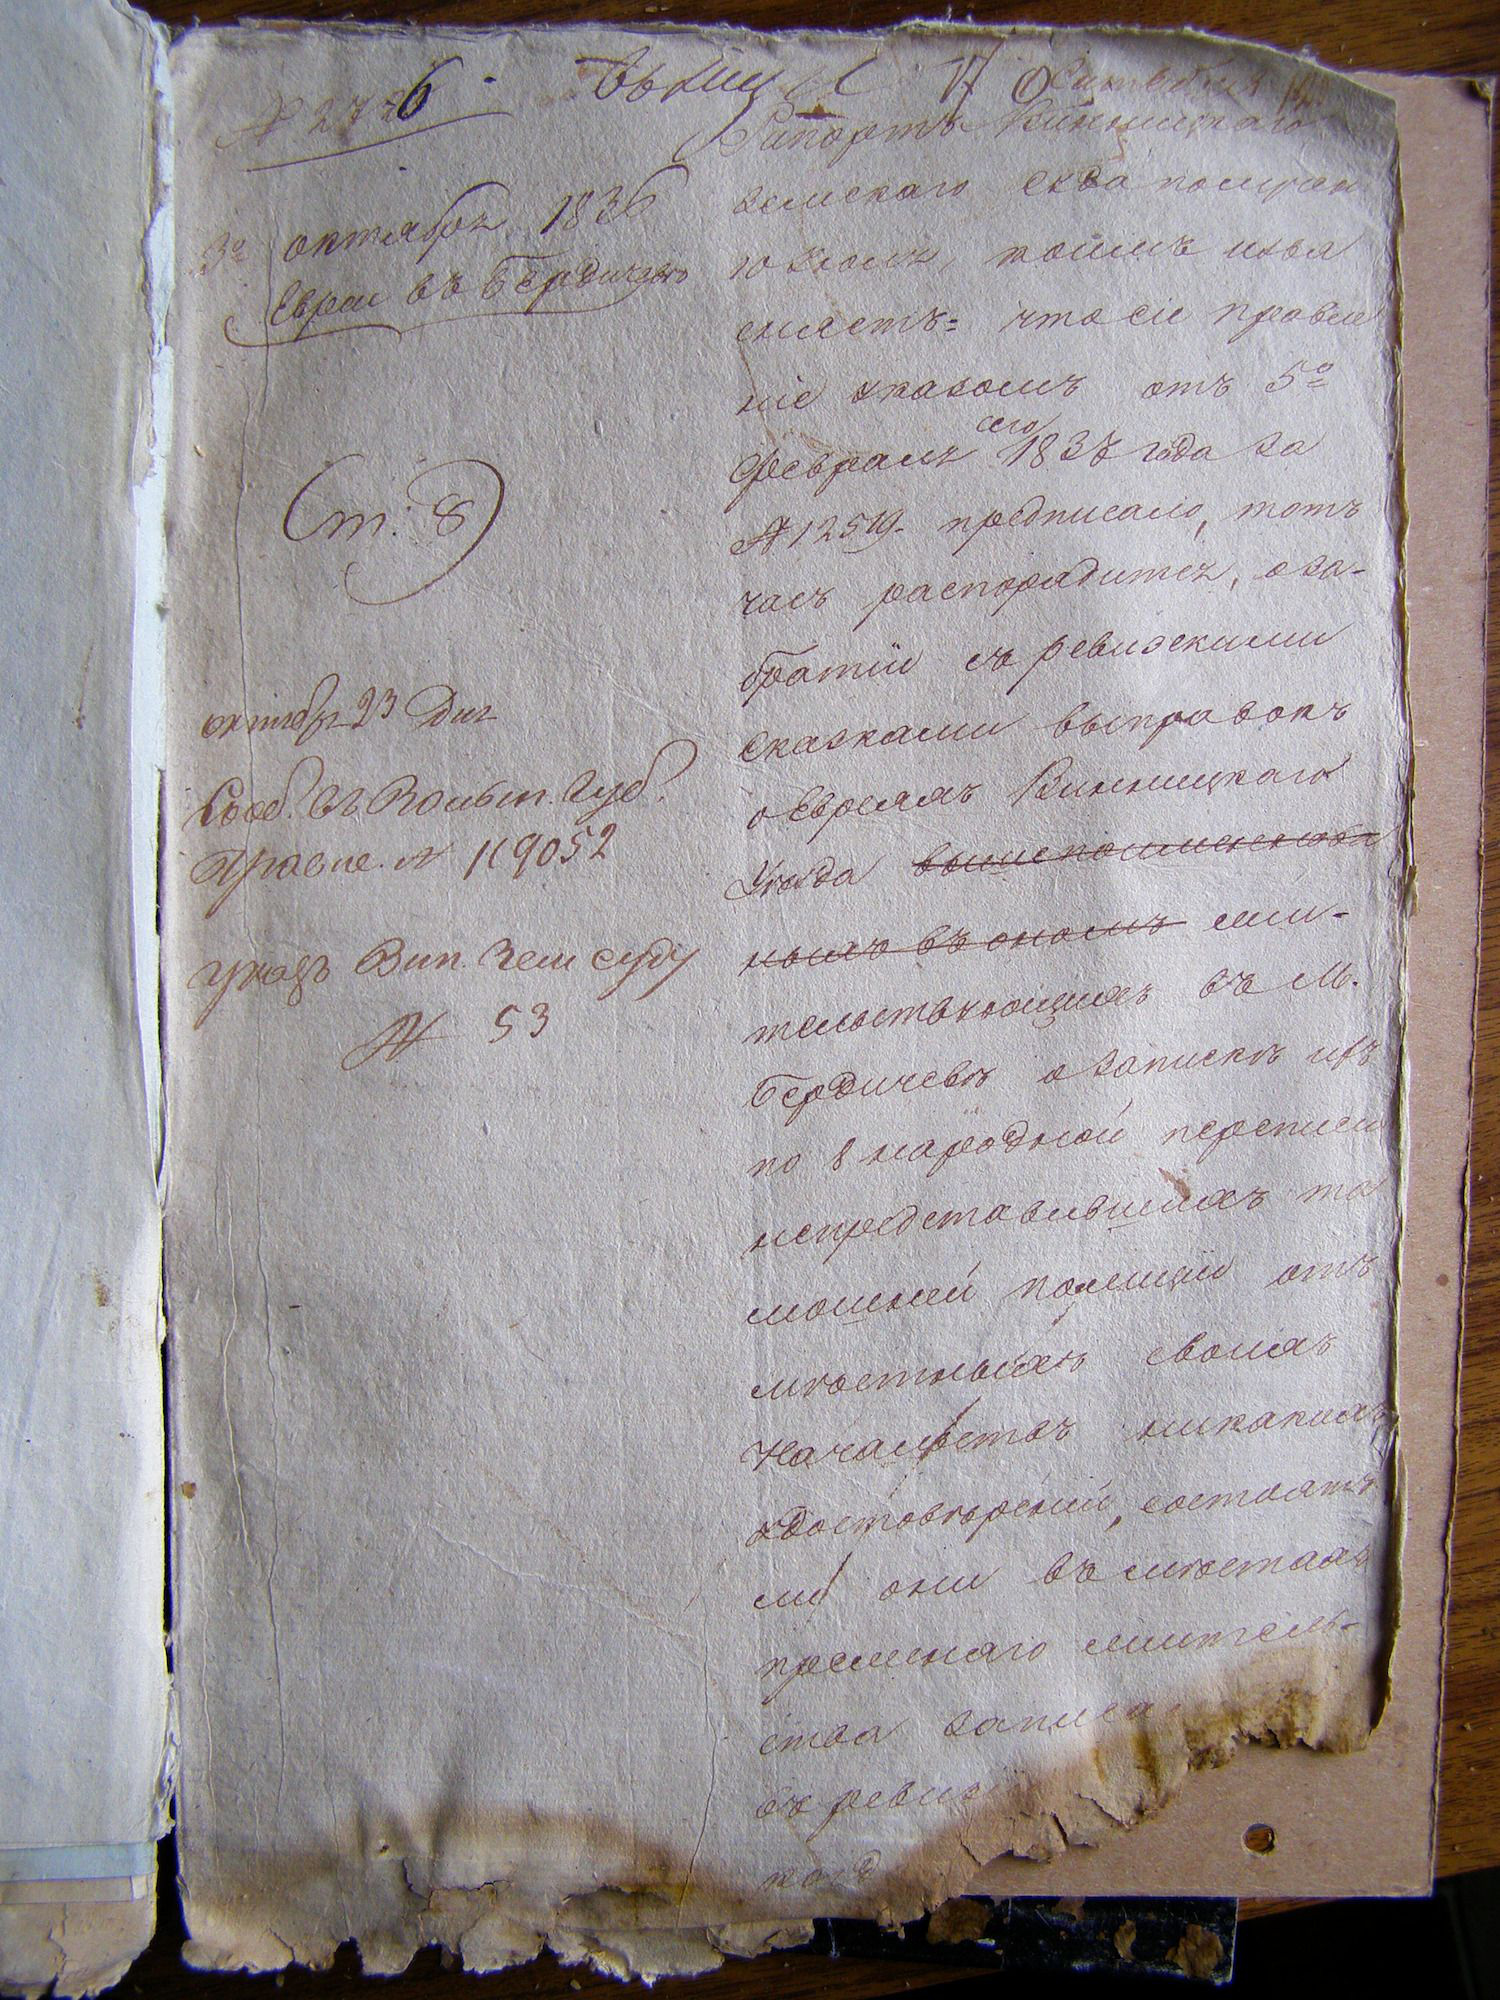 № 2726
3го октября 1836
Евреи въ Бердичевѣ
Ст: 8
октября 23 дня
Сооб. въ Волын. Губ.
Правле. №
указъ Вин. Зем суду
№ 53
Рапортъ Винницкаго
земскаго суда
коимъ изъя
сняетъ: что сіе правле
ніе указомъ отъ 5го
февраля сего 183 года за
№ 12519. предписало, тотъ
часъ распорядится, о за-
братіи съ ревизскими
сказками выправокъ
о Евреяхъ Винницкаго
Уѣзда вышепоименован
ныхъ въ ономъ жи-
тельствующихъ въ М.
Бердичевѣ о запискѣ ихъ
по 8 народной переписи
непредставившихъ та
мошней полиціи отъ
мѣстныхъ своихъ
Начальствъ никакихъ
удостовѣреній, состоятъ
ли они въ мѣстахъ
прежняго житель-
ства записа
въ ревиз